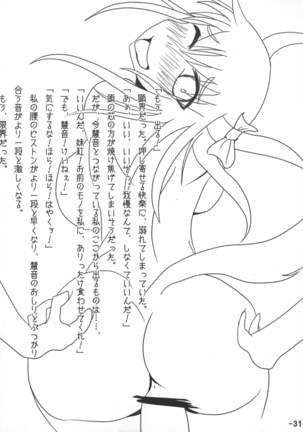 「もう、出る…」
限界だった。押し寄せる快楽に、溺れてしまっていた。
「あぁ、いい、いいぞ！我慢なんて、しなくていいんだ！」
頭の芯の方が焼け焦げてしまいそうだった。
だが、今慧音とつながっている私のここから出るものは……、
「いいんだ、妹紅！お前のモノを私に、ありったけ食わせてくれ！」
「でも、慧音！けいねぇ！」
「気にするな！ほら！ほら！はやくッ！」
私の腰のピストンがより一段と早くなり、慧音のおしりとぶつかり
合う音がより一段と激しくなる。
もう、限界だった。
-31